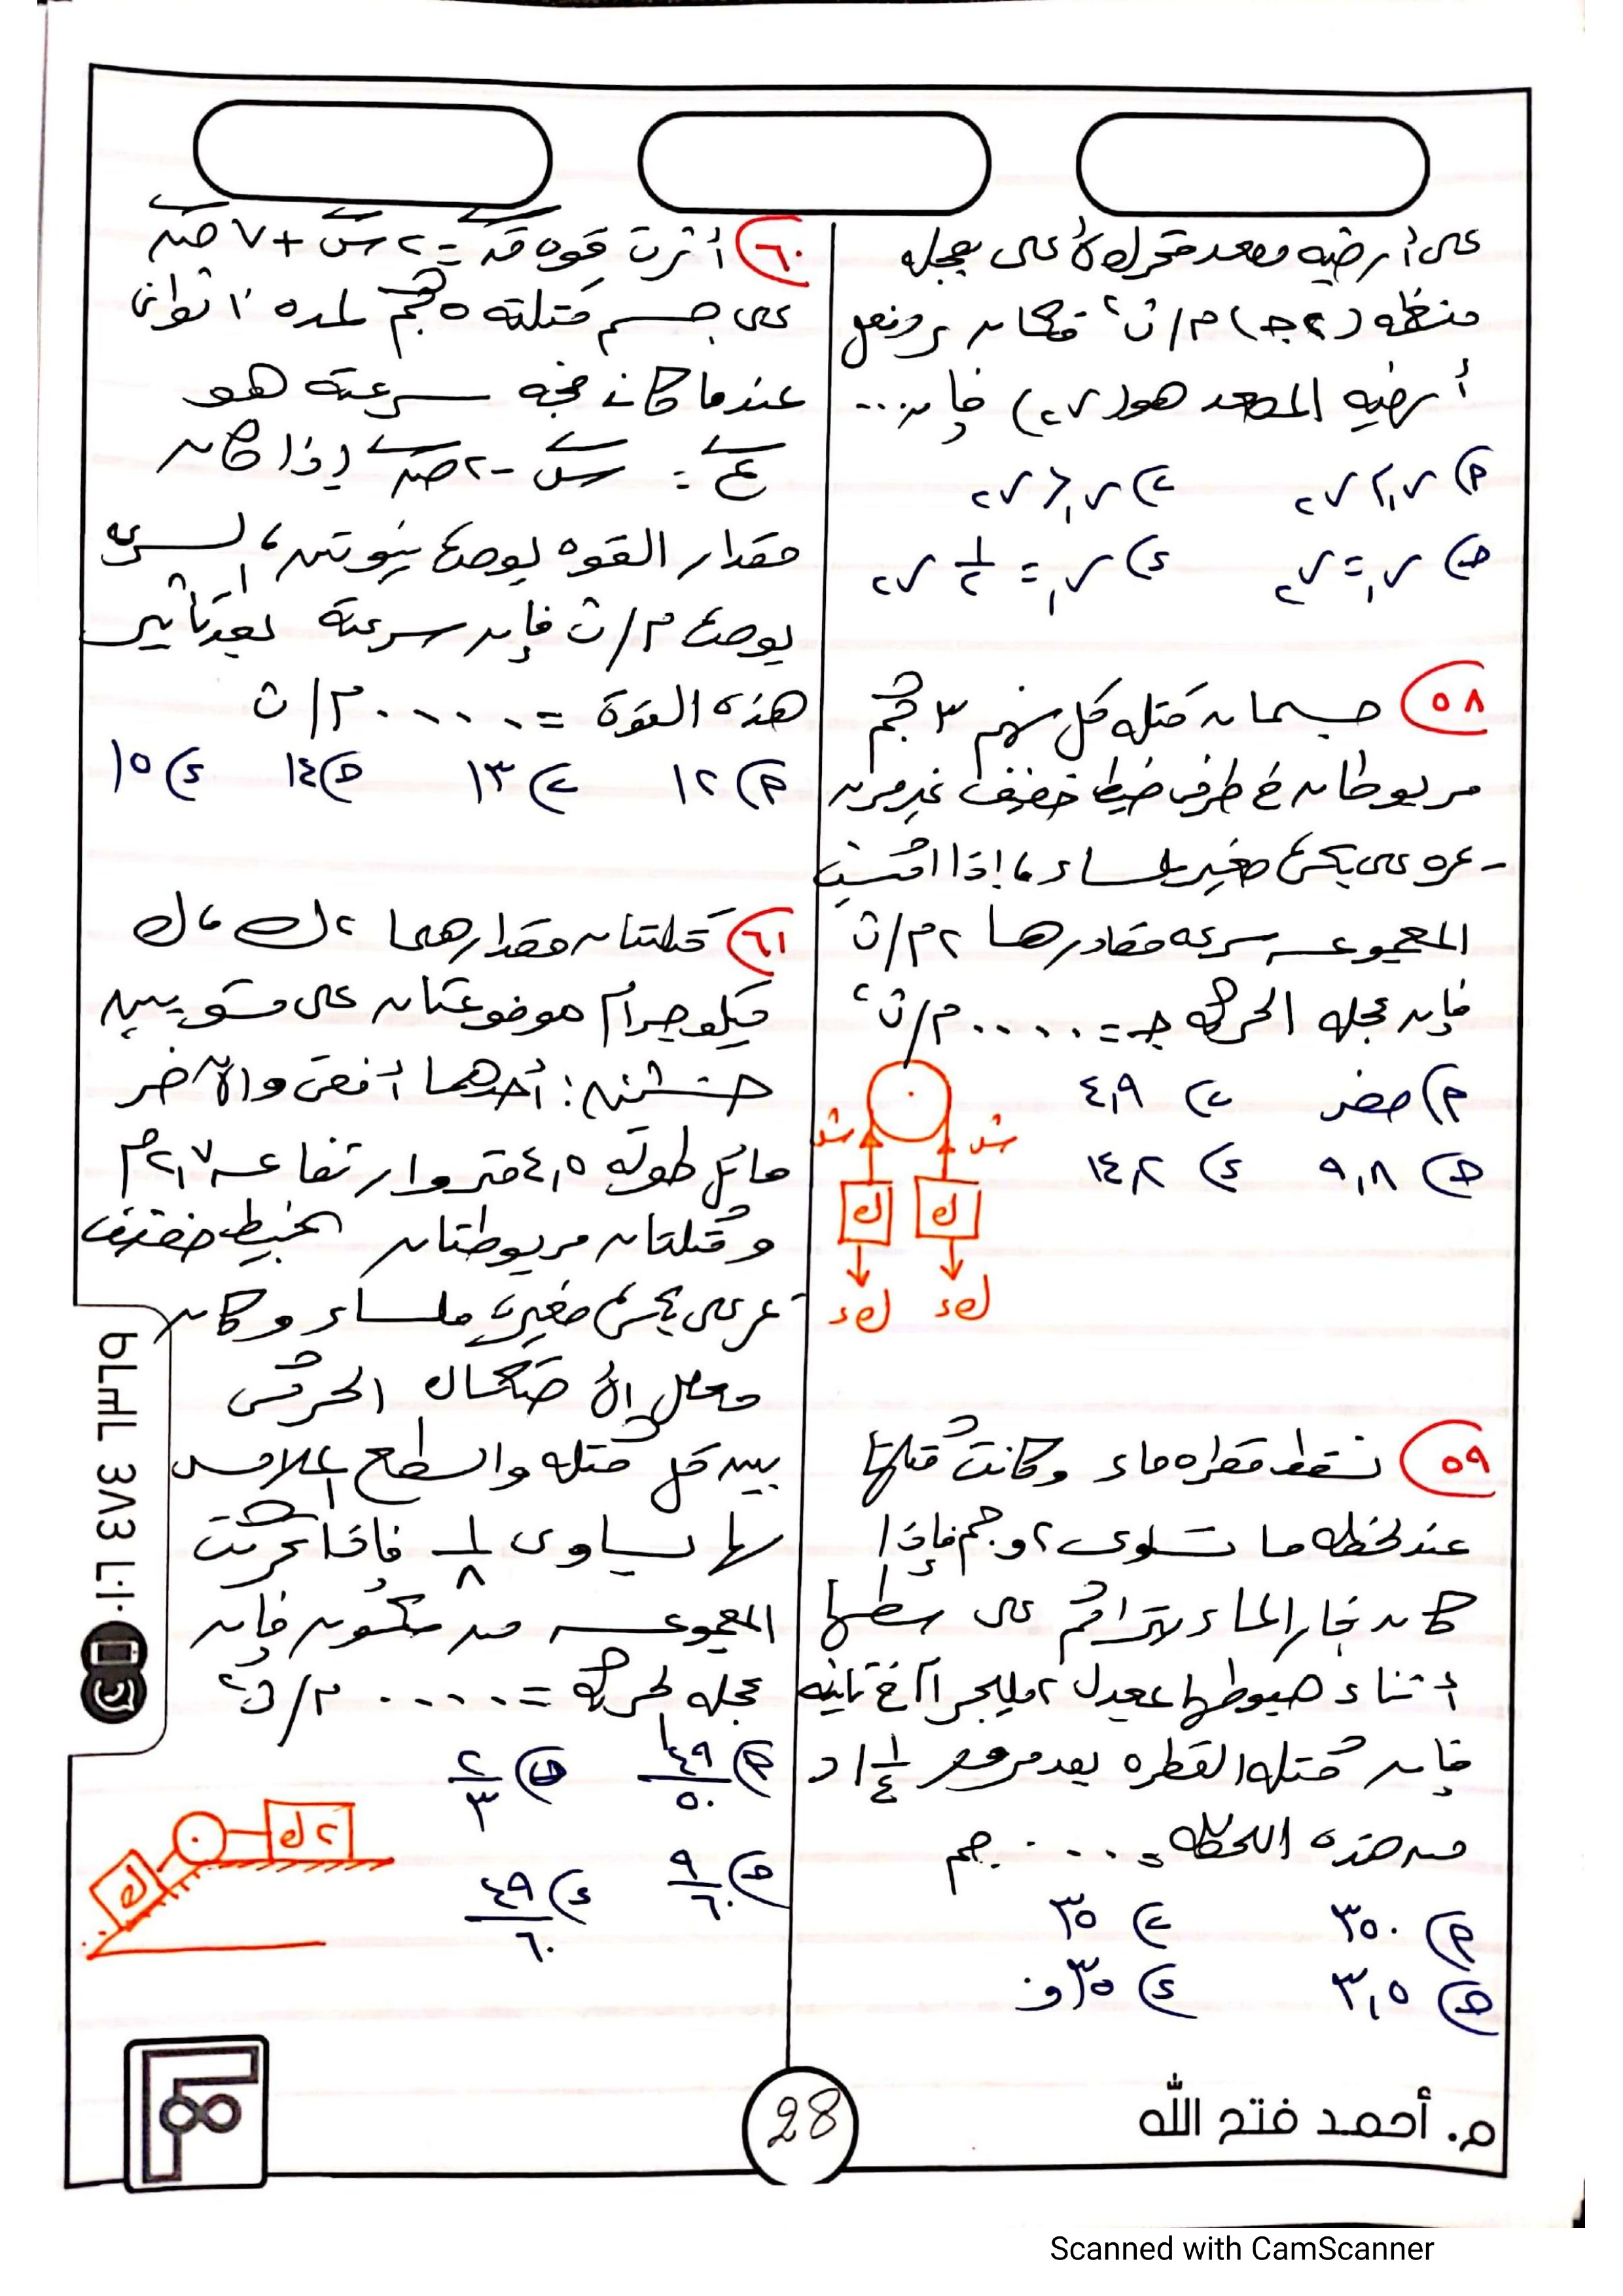 على أرضيه مصعد متحرك لأعلى بعجله
منتظمه (٢جـ) م/ث٢ فكان رد فعل
أرضيه المصعد هو (ر٢) فإن ...
أ) ر١ > ر٢ ب) ر١ < ر٢
جـ) ر١ = ر٢ د) ر١ = ١/٢ ر٢
٥٨ جسمان كتله كل منهم ٣ كجم
مربوطان في طرفى خيط خفيف غير مرن
يمر على بكرة صغيره ملساء، إذا اكتسبت
المجموعه سرعه مقدارها ٢م/ث
فإن عجله الحركه جـ = ..... م/ث٢
أ) صفر ب) ٤,٩
جـ) ٩,٨ د) ١٤,٢
شـ شـ
ك ك
ك د ك د
٥٩ تسقط قطره ماء وكانت كتلتها
عند لحظه ما تساوى ٢و جم فإذا
كان بخار الماء يتراكم على سطحها
أثناء هبوطها بمعدل ٢ مليجرام في ثانيه
فإن كتله القطره بعد مرور ١ ١/٤ د
من هذه اللحظه = ..... جم
أ) ٣٥٠ ب) ٣٥
جـ) ٣,٥ د) ٣٥و
٦٠ أثرت قوه ق = ٢ س + ٧ ص
على جسم كتلته ٥ كجم لمده ١٠ ثوانى
عندما كان متجه سرعته هو
ع = س - ٢ ص إذا كان
مقدار القوه بوحدة نيوتن، السرعه
بوحدة م/ث فإن سرعته بعد تأثير
هذه القوة = ..... م/ث
أ) ١٢ ب) ١٣ جـ) ١٤ د) ١٥
٦١ كتلتان مقدارهما ٢ك، ك
كيلوجرام موضوعتان على مستويين
خشنين: أحدهما أفقى والآخر
مائل طوله ٤,٥ متر وارتفاعه ٢,٧م
وكتلتان مربوطتان بخيط خفيف
يمر على بكرة صغيرة ملساء وكان
معامل الأحتكاك الحركى
بين كل كتله والسطح الملامس
لها يساوى ١/٨ فإذا تحركت
المجموعه من سكون فإن
عجله الحركه = ..... م/ث٢
أ) ٤٩/٥٠ ب) ٢/٣
جـ) ٩/٦٠ د) ٤٩/٦٠
٢ك
ك
28
م. أحمد فتح الله
Scanned with CamScanner